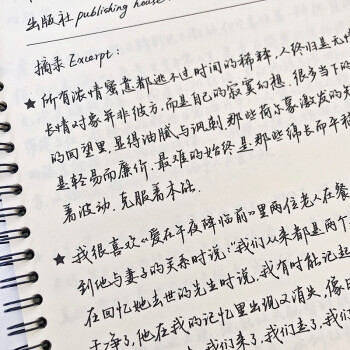 出版社 publishing house
摘录 Excerpt:
★ 所有浓情蜜意都逃不过时间的稀释,人终归是无
长情对象并非彼方,而是自己的寂寞幻想.很多当下的
的回望里,显得油腻与讽刺.那些荷尔蒙激发的
是轻易而廉价.最难的始终是那些绵长而平
着波动.克服着本能.
★ 我很喜欢《爱在午夜降临前》里两位老人在餐
到他与妻子的关系时说:"我们从来都是两个
在回忆她去世的先生时说.我有时能记起
干净了,他在我的记忆里出现又消失,像
我们来了,我们走了,我们